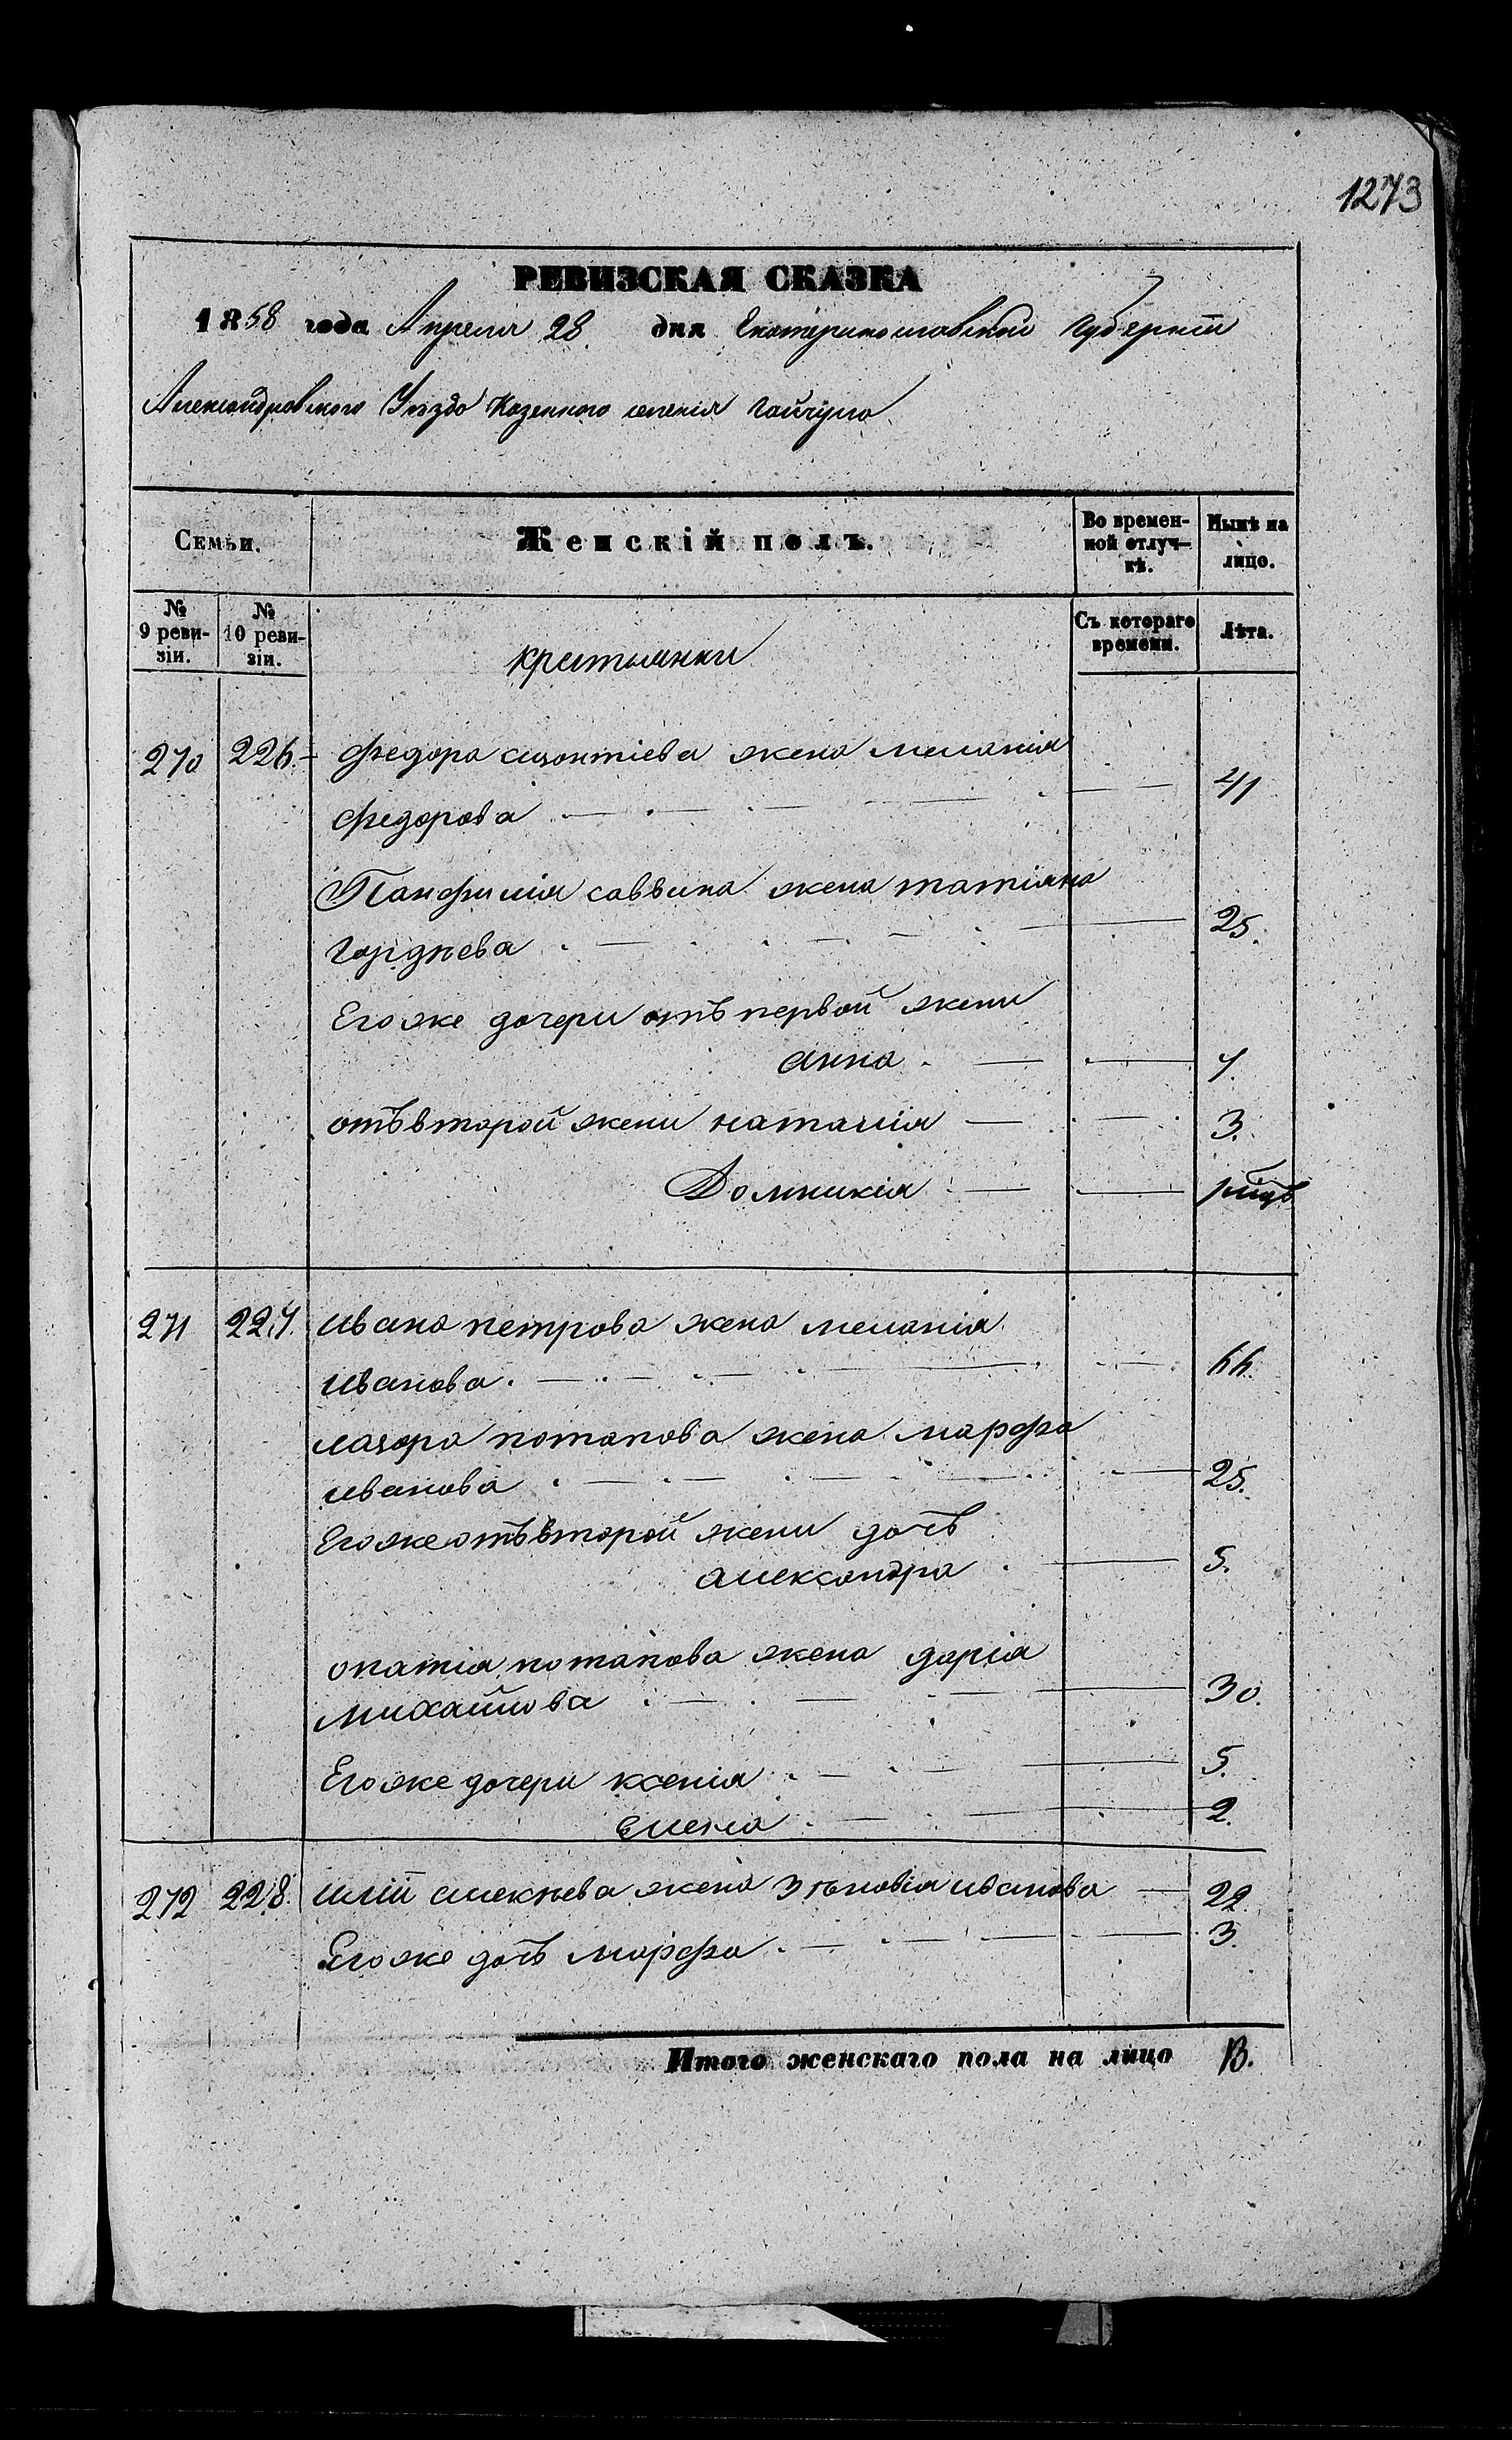 1273
РЕВИЗСКАЯ СКАЗКА
1858 года Апреля 28 дня Екатеринославской губерніи
Александровского Уѣзда Казенного селенія Гайчула
Семьи. Женскій полъ. Во времен- Нынѣ на
ной отлуч- лицо.
кѣ.
№ № Съ котораго Лѣта.
9 реви- 10 реви- времени.
зіи. зіи.
крестьянки
270 226 федора жена меланія
федорова 41
Панфилія саввина жена татіяна
гордѣева 25.
Его же дочери отъ первой жени
анна 7.
отъ второй жени наталія 3.
Домникія
271 227. ивана петрова жена меланія
иванова 66.
лазора потапова жена марфа
иванова 25.
Его же отъ второй жени дочь
александра 5.
потапова жена дарія
михайлова 30.
Его же дочери ксенія 5.
елена 2.
272 228. иліи алекѣева жена зѣновія иванова 22.
Его же дочь марфа 3.
Итого женскаго пола на лицо 13.